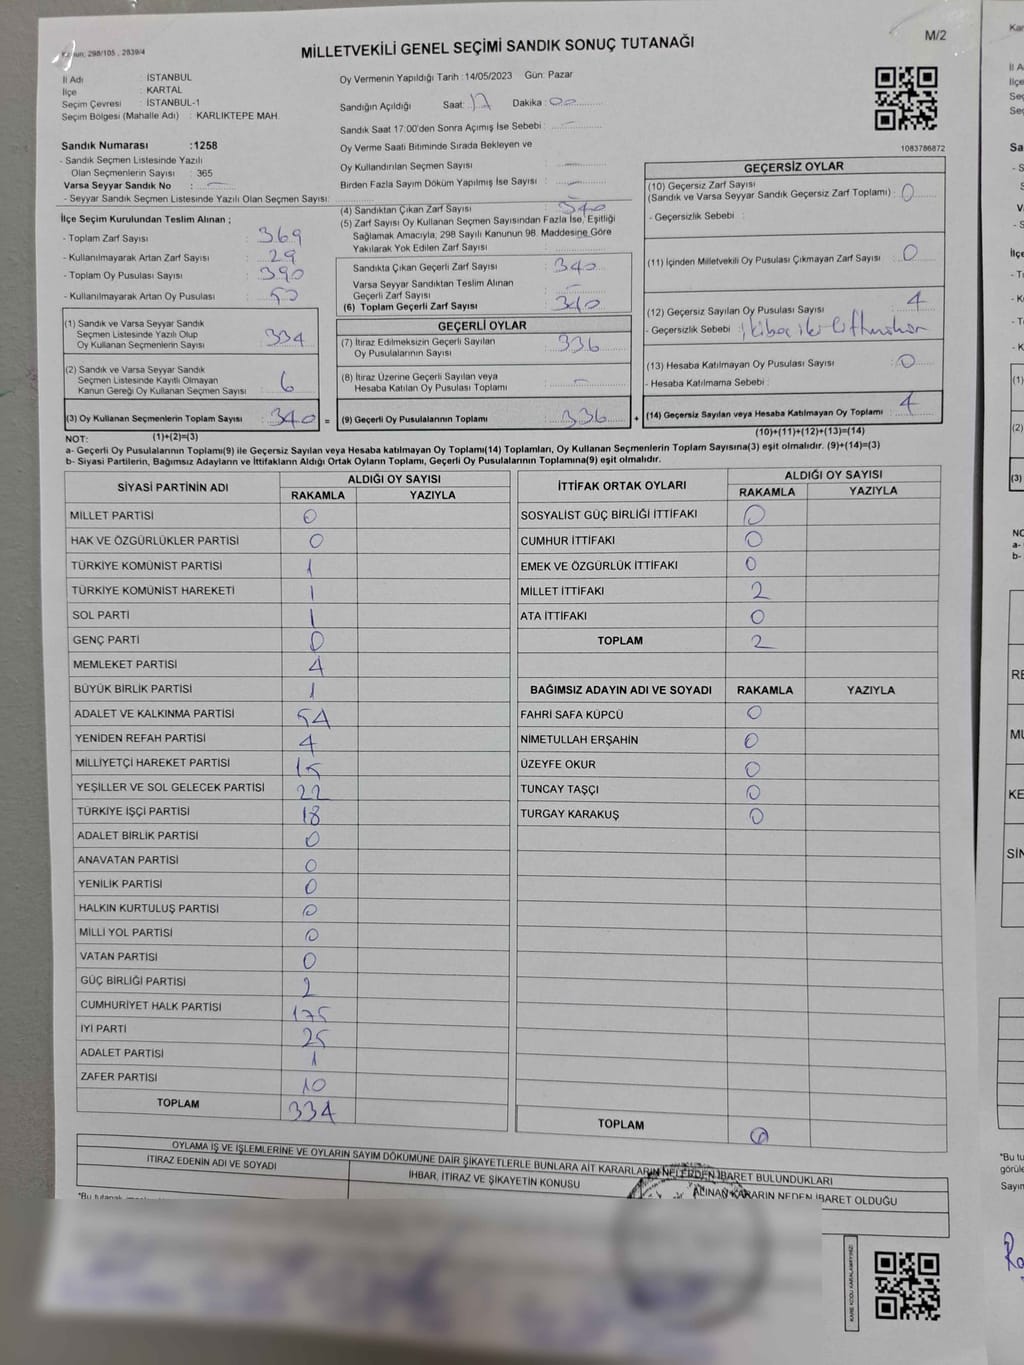 Kanun: 298/105 , 2839/4
MİLLETVEKİLİ GENEL SEÇİMİ SANDIK SONUÇ TUTANAĞI
M/2
İl Adı : İSTANBUL
İlçe : KARTAL
Seçim Çevresi : İSTANBUL-1
Seçim Bölgesi (Mahalle Adı) : KARLIKTEPE MAH.
Sandık Numarası :1258
- Sandık Seçmen Listesinde Yazılı
Olan Seçmenlerin Sayısı : 365
Varsa Seyyar Sandık No : —
- Seyyar Sandık Seçmen Listesinde Yazılı Olan Seçmen Sayısı:
İlçe Seçim Kurulundan Teslim Alınan ;
- Toplam Zarf Sayısı : 369
- Kullanılmayarak Artan Zarf Sayısı : 29
- Toplam Oy Pusulası Sayısı : 390
- Kullanılmayarak Artan Oy Pusulası : 50
(1) Sandık ve Varsa Seyyar Sandık
Seçmen Listesinde Yazılı Olup
Oy Kullanan Seçmenlerin Sayısı : 334
(2) Sandık ve Varsa Seyyar Sandık
Seçmen Listesinde Kayıtlı Olmayan
Kanun Gereği Oy Kullanan Seçmen Sayısı : 6
(3) Oy Kullanan Seçmenlerin Toplam Sayısı : 340 =
Oy Vermenin Yapıldığı Tarih : 14/05/2023 Gün: Pazar
Sandığın Açıldığı Saat: 17 Dakika : 00
Sandık Saat 17:00'den Sonra Açımış İse Sebebi : —
Oy Verme Saati Bitiminde Sırada Bekleyen ve
Oy Kullandırılan Seçmen Sayısı : —
Birden Fazla Sayım Döküm Yapılmış İse Sayısı : —
(4) Sandıktan Çıkan Zarf Sayısı : 340
(5) Zarf Sayısı Oy Kullanan Seçmen Sayısından Fazla İse, Eşitliği
Sağlamak Amacıyla, 298 Sayılı Kanunun 98. Maddesine Göre
Yakılarak Yok Edilen Zarf Sayısı :
Sandıkta Çıkan Geçerli Zarf Sayısı : 340
Varsa Seyyar Sandıktan Teslim Alınan
Geçerli Zarf Sayısı : —
(6) Toplam Geçerli Zarf Sayısı : 340
GEÇERLİ OYLAR
(7) İtiraz Edilmeksizin Geçerli Sayılan
Oy Pusulalarının Sayısı : 336
(8) İtiraz Üzerine Geçerli Sayılan veya
Hesaba Katılan Oy Pusulası Toplamı : —
(9) Geçerli Oy Pusulalarının Toplamı : 336 +
1083786872
GEÇERSİZ OYLAR
(10) Geçersiz Zarf Sayısı
(Sandık ve Varsa Seyyar Sandık Geçersiz Zarf Toplamı) : 0
- Geçersizlik Sebebi :
(11) İçinden Milletvekili Oy Pusulası Çıkmayan Zarf Sayısı : 0
(12) Geçersiz Sayılan Oy Pusulası Sayısı : 4
- Geçersizlik Sebebi :
(13) Hesaba Katılmayan Oy Pusulası Sayısı : 0
- Hesaba Katılmama Sebebi :
(14) Geçersiz Sayılan veya Hesaba Katılmayan Oy Toplamı : 4
(10)+(11)+(12)+(13)=(14)
NOT: (1)+(2)=(3)
a- Geçerli Oy Pusulalarının Toplamı(9) ile Geçersiz Sayılan veya Hesaba katılmayan Oy Toplamı(14) Toplamları, Oy Kullanan Seçmenlerin Toplam Sayısına(3) eşit olmalıdır. (9)+(14)=(3)
b- Siyasi Partilerin, Bağımsız Adayların ve İttifakların Aldığı Ortak Oyların Toplamı, Geçerli Oy Pusulalarının Toplamına(9) eşit olmalıdır.
SİYASİ PARTİNİN ADI ALDIĞI OY SAYISI
RAKAMLA YAZIYLA
MİLLET PARTİSİ 0
HAK VE ÖZGÜRLÜKLER PARTİSİ 0
TÜRKİYE KOMÜNİST PARTİSİ 1
TÜRKİYE KOMÜNİST HAREKETİ 1
SOL PARTİ 1
GENÇ PARTİ 0
MEMLEKET PARTİSİ 4
BÜYÜK BİRLİK PARTİSİ 1
ADALET VE KALKINMA PARTİSİ 54
YENİDEN REFAH PARTİSİ 4
MİLLİYETÇİ HAREKET PARTİSİ 15
YEŞİLLER VE SOL GELECEK PARTİSİ 22
TÜRKİYE İŞÇİ PARTİSİ 18
ADALET BİRLİK PARTİSİ 0
ANAVATAN PARTİSİ 0
YENİLİK PARTİSİ 0
HALKIN KURTULUŞ PARTİSİ 0
MİLLİ YOL PARTİSİ 0
VATAN PARTİSİ 0
GÜÇ BİRLİĞİ PARTİSİ 2
CUMHURİYET HALK PARTİSİ 175
İYİ PARTİ 25
ADALET PARTİSİ 1
ZAFER PARTİSİ 10
TOPLAM 334
İTTİFAK ORTAK OYLARI ALDIĞI OY SAYISI
RAKAMLA YAZIYLA
SOSYALİST GÜÇ BİRLİĞİ İTTİFAKI 0
CUMHUR İTTİFAKI 0
EMEK VE ÖZGÜRLÜK İTTİFAKI 0
MİLLET İTTİFAKI 2
ATA İTTİFAKI 0
TOPLAM 2
BAĞIMSIZ ADAYIN ADI VE SOYADI RAKAMLA YAZIYLA
FAHRİ SAFA KÜPCÜ 0
NİMETULLAH ERŞAHİN 0
ÜZEYFE OKUR 0
TUNCAY TAŞÇI 0
TURGAY KARAKUŞ 0
TOPLAM 0
OYLAMA İŞ VE İŞLEMLERİNE VE OYLARIN SAYIM DÖKÜMÜNE DAİR ŞİKAYETLERLE BUNLARA AİT KARARLARIN NELERDEN İBARET BULUNDUKLARI
İTİRAZ EDENİN ADI VE SOYADI
İHBAR, İTİRAZ VE ŞİKAYETİN KONUSU
ALINAN KARARIN NEDEN İBARET OLDUĞU
KARE KODU KARALAMAYINIZ!